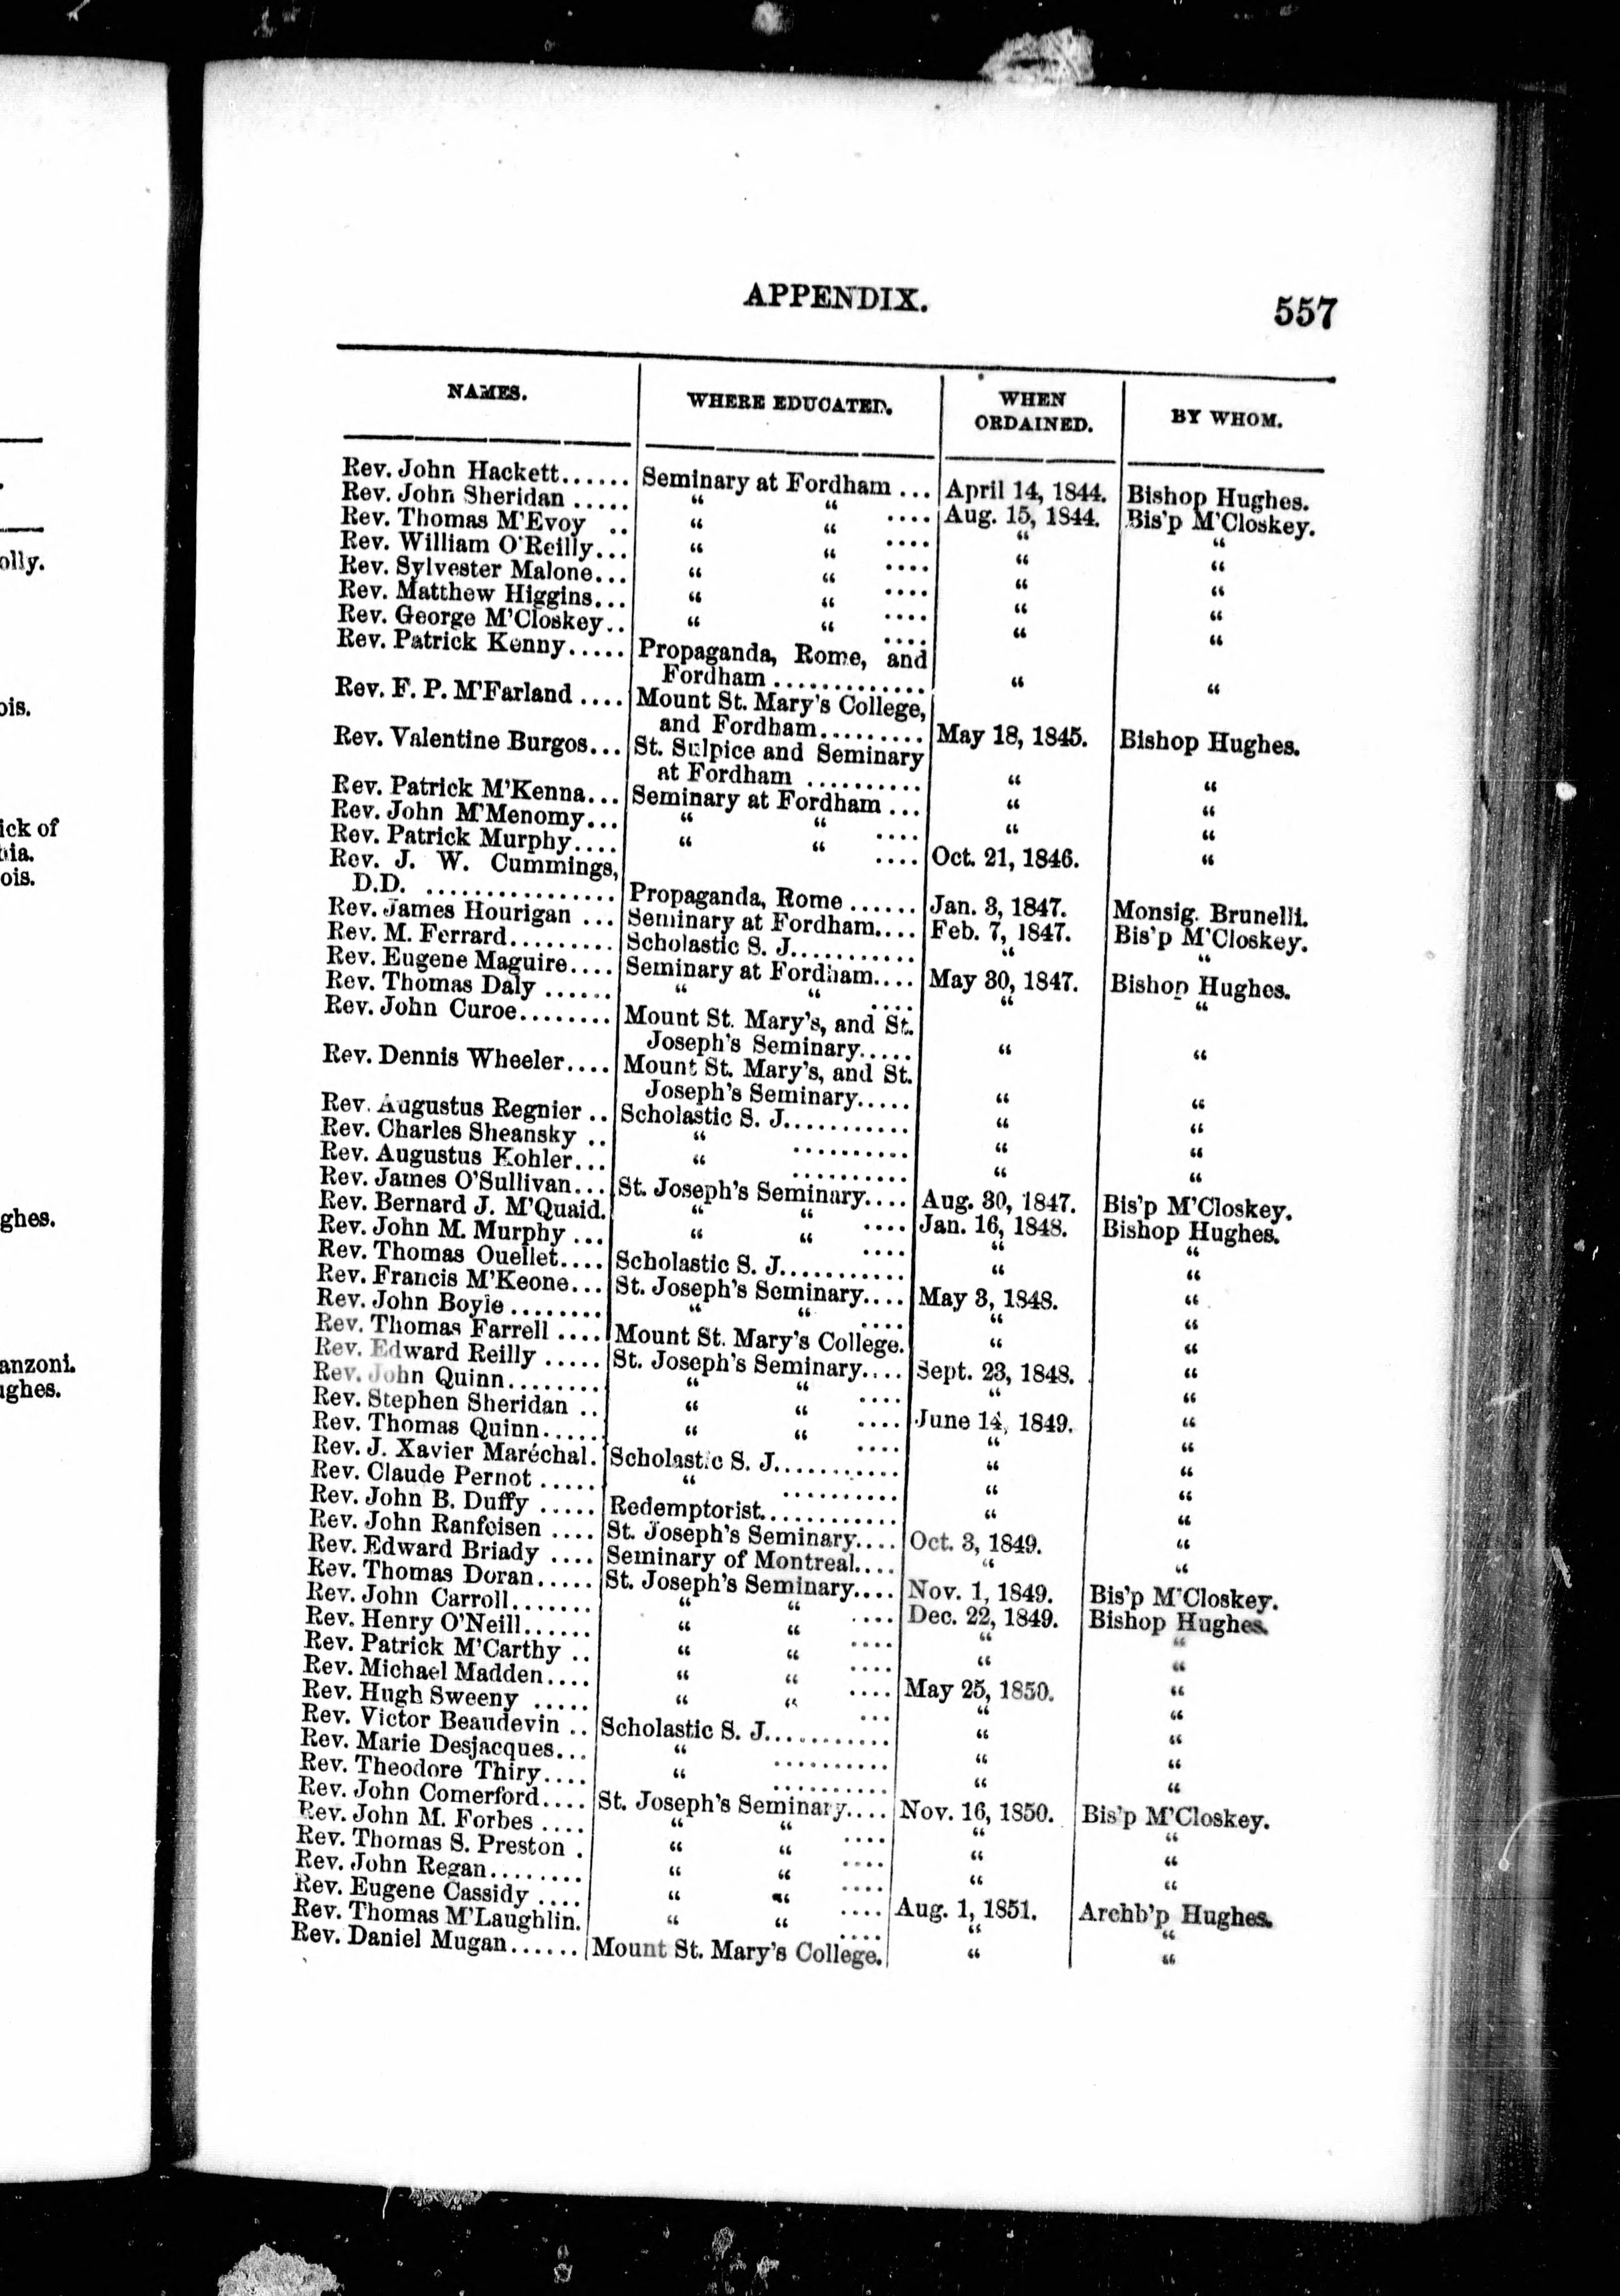 olly.
ois.
ick of
bia.
ois.
ghes.
anzoni.
ghes.
APPENDIX. 557
NAMES. WHERE EDUCATED. WHEN ORDAINED. BY WHOM.
Rev. John Hackett...... Seminary at Fordham ... April 14, 1844. Bishop Hughes.
Rev. John Sheridan ..... “ “ .... Aug. 15, 1844. Bis'p M'Closkey.
Rev. Thomas M'Evoy .. “ “ .... “ “
Rev. William O'Reilly... “ “ .... “ “
Rev. Sylvester Malone... “ “ .... “ “
Rev. Matthew Higgins... “ “ .... “ “
Rev. George M'Closkey.. “ “ .... “ “
Rev. Patrick Kenny..... Propaganda, Rome, and
Fordham ............. “ “
Rev. F. P. M'Farland .... Mount St. Mary's College,
and Fordham......... May 18, 1845. Bishop Hughes.
Rev. Valentine Burgos... St. Sulpice and Seminary
at Fordham .......... “ “
Rev. Patrick M'Kenna... Seminary at Fordham ... “ “
Rev. John M'Menomy... “ “ .... “ “
Rev. Patrick Murphy.... “ “ .... Oct. 21, 1846. “
Rev. J. W. Cummings,
D.D. ................ Propaganda, Rome ...... Jan. 3, 1847. Monsig. Brunelli.
Rev. James Hourigan ... Seminary at Fordham.... Feb. 7, 1847. Bis'p M'Closkey.
Rev. M. Ferrard......... Scholastic S. J........... “ “
Rev. Eugene Maguire.... Seminary at Fordham.... May 30, 1847. Bishop Hughes.
Rev. Thomas Daly ...... “ “ .... “ “
Rev. John Curoe........ Mount St. Mary's, and St.
Joseph's Seminary..... “ “
Rev. Dennis Wheeler.... Mount St. Mary's, and St.
Joseph's Seminary..... “ “
Rev. Augustus Regnier .. Scholastic S. J........... “ “
Rev. Charles Sheansky .. “ .......... “ “
Rev. Augustus Kohler... “ .......... “ “
Rev. James O'Sullivan... St. Joseph's Seminary.... Aug. 30, 1847. Bis'p M'Closkey.
Rev. Bernard J. M'Quaid. “ “ .... Jan. 16, 1848. Bishop Hughes.
Rev. John M. Murphy ... “ “ .... “ “
Rev. Thomas Ouellet.... Scholastic S. J........... “ “
Rev. Francis M'Keone... St. Joseph's Seminary.... May 3, 1848. “
Rev. John Boyle ........ “ “ .... “ “
Rev. Thomas Farrell .... Mount St. Mary's College. “ “
Rev. Edward Reilly ..... St. Joseph's Seminary.... Sept. 23, 1848. “
Rev. John Quinn........ “ “ .... “ “
Rev. Stephen Sheridan .. “ “ .... June 14, 1849. “
Rev. Thomas Quinn..... “ “ .... “ “
Rev. J. Xavier Maréchal. Scholastic S. J........... “ “
Rev. Claude Pernot ..... “ .......... “ “
Rev. John B. Duffy ..... Redemptorist............ “ “
Rev. John Ranfeisen .... St. Joseph's Seminary.... Oct. 3, 1849. “
Rev. Edward Briady .... Seminary of Montreal.... “ “
Rev. Thomas Doran..... St. Joseph's Seminary.... Nov. 1, 1849. Bis'p M'Closkey.
Rev. John Carroll....... “ “ .... Dec. 22, 1849. Bishop Hughes.
Rev. Henry O'Neill...... “ “ .... “ “
Rev. Patrick M'Carthy .. “ “ .... “ “
Rev. Michael Madden.... “ “ .... May 25, 1850. “
Rev. Hugh Sweeny ..... “ “ ... “ “
Rev. Victor Beaudevin .. Scholastic S. J........... “ “
Rev. Marie Desjacques... “ .......... “ “
Rev. Theodore Thiry.... “ .......... “ “
Rev. John Comerford.... St. Joseph's Seminary.... Nov. 16, 1850. Bis'p M'Closkey.
Rev. John M. Forbes .... “ “ .... “ “
Rev. Thomas S. Preston . “ “ .... “ “
Rev. John Regan........ “ “ .... “ “
Rev. Eugene Cassidy .... “ “ .... Aug. 1, 1851. Archb'p Hughes.
Rev. Thomas M'Laughlin. “ “ .... “ “
Rev. Daniel Mugan...... Mount St. Mary's College. “ “